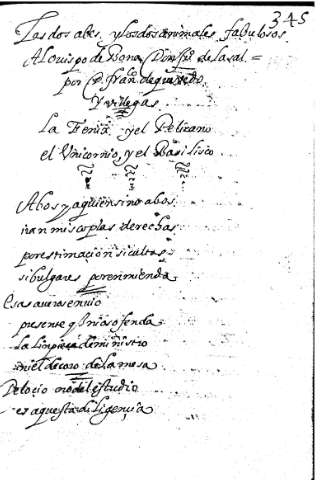 345
Las dos abes, y los dos animales fabulosos
Al obispo de Bona, Don Ju.º de la sal =
por D. fran.co de quevedo,
Y villegas
La Fenix, y el Pelicano
el Unicornio, y el Basilisco
A bos y a quien sino a bos
iran mis coplas derechas
por estimacion si cultas
si bulgares por enmienda
Esas aves os envio
presente q. ni os ofenda
la limpieza de ministro
ni el decoro de la mesa
De l ocio no del estudio
es aquesta diligençia